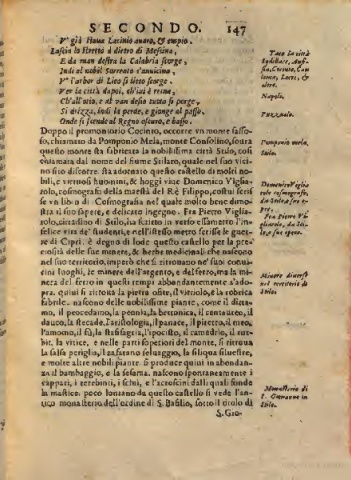 SECONDO. 147
V' già fiaua Lacinio auaro, & empio.
Lascia lo stretto à dietro di Messina,
E da man destra la Calabria scorge,
Indi al nobil Surrento s'auuicina,
V' l'arbor di Lieo sì lieto sorge.
Ver la città dapoi, ch'iui è reina,
Ch'all'otio, e al van desio tutta si porge,
Si drizza, indi la perde, e giunge al passo.
Onde si scende al Regno oscuro, e basso.
Doppo il promontorio Cocinto, occorre vn monte sasso-
so, chiamato da Pomponio Mela, monte Consolino, soura
questo monte sta fabricata la nobilissima città Stilo, così
chiamata dal nome del fiume Stilaro, quale nel suo vici-
no sito discorre. sta adornato questo castello di molti no-
bili, e virtuosi huomini, & hoggi viue Domenico Viglia-
rolo, cosmografo della maestà del Rè Filippo, costui scri
se vn libro di Cosmografia nel quale molto bene dimo-
stra il suo sapere, e delicato ingegno. Fra Pietro Viglia-
rolo, cittadino di Stilo, hà scritto in verso essametro l'in-
felice vita de' studenti, e nell'istesso metro scrisse le guer-
re di Cipri. è degno di lode questo castello per la pre-
ciosità delle sue minere, & herbe medicinali che nascono
nel suo territorio, imperò che si ritrouano ne' suoi conui-
cini luoghi, le minere dell'argento, e del ferro, ma la mi-
nera del ferro in questi tempi abbondantemente s'ado-
pra. quiui si ritroua la pietra osite, il vitriolo, e la robrica
fabrile. nascono delle nobilissime piante, come il ditta-
mo, il peocedamo, la peonia, la bettonica, il centauro, il
dauco, la stecade, l'aristologia, il panace, il pietro, il meo,
l'amomo, il fù, la stafisagria, l'ipocisto, il camedrio, il rut-
bit, la vitice, e nelle parti soperiori del monte, si ritroua
la salsa periglia, il zafarano seluaggio, la siliqua siluestre,
e molte altre nobili piante. si produce quiui in abondan-
za il bambaggio, e la sesama. nascono spontaneamente i
cappari, i terebinti, i schini, e l'acroscini dalli quali fonde
la mastice. poco lontano da questo castello si vede l'an-
tico monasterio dell'ordine di S. Basilio, sotto il titulo di
S. Gio-
Tace la città
Napoli.
Puzzuolo.
Pomponio mela.
Stilo.
Domenico Viglia
rolo cosmografo,
da Stilo, e sue o-
pre.
Fra Pietro Vi-
gliarolo, da Sti-
lo, e sue opere.
Minere diuerse
nel territorio di
Stilo.
Monasterio di
S. Giouanne in
Stilo.